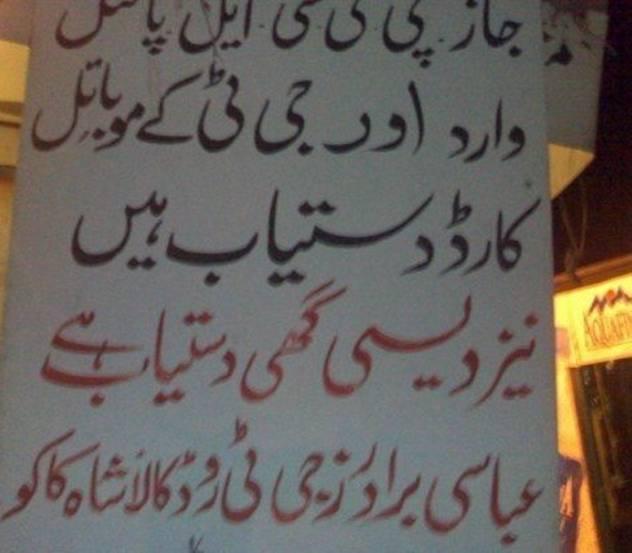 جاز پی ٹی سی ایل پاسل
وارد اور جی ٹی کے موبائل
کارڈ دستیاب ہیں
نیز دیسی گھی دستیاب ہے
عباسی برادرز جی ٹی روڈ کالا شاہ کاکو
AQUAFI